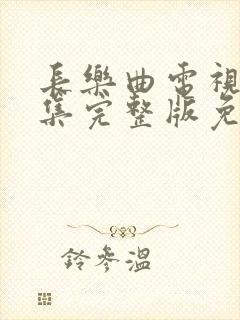 長樂曲電視
集完整版免
鈴參溫